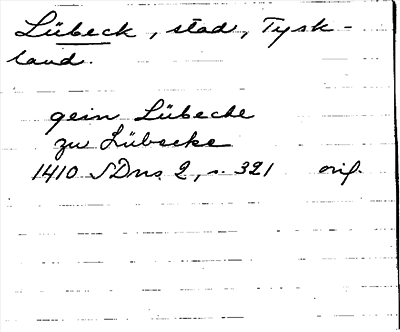 Lübeck, stad, Tysk-
land.
gein Lübecke
zu Lübecke
1410 SDns 2, s. 321 orig.